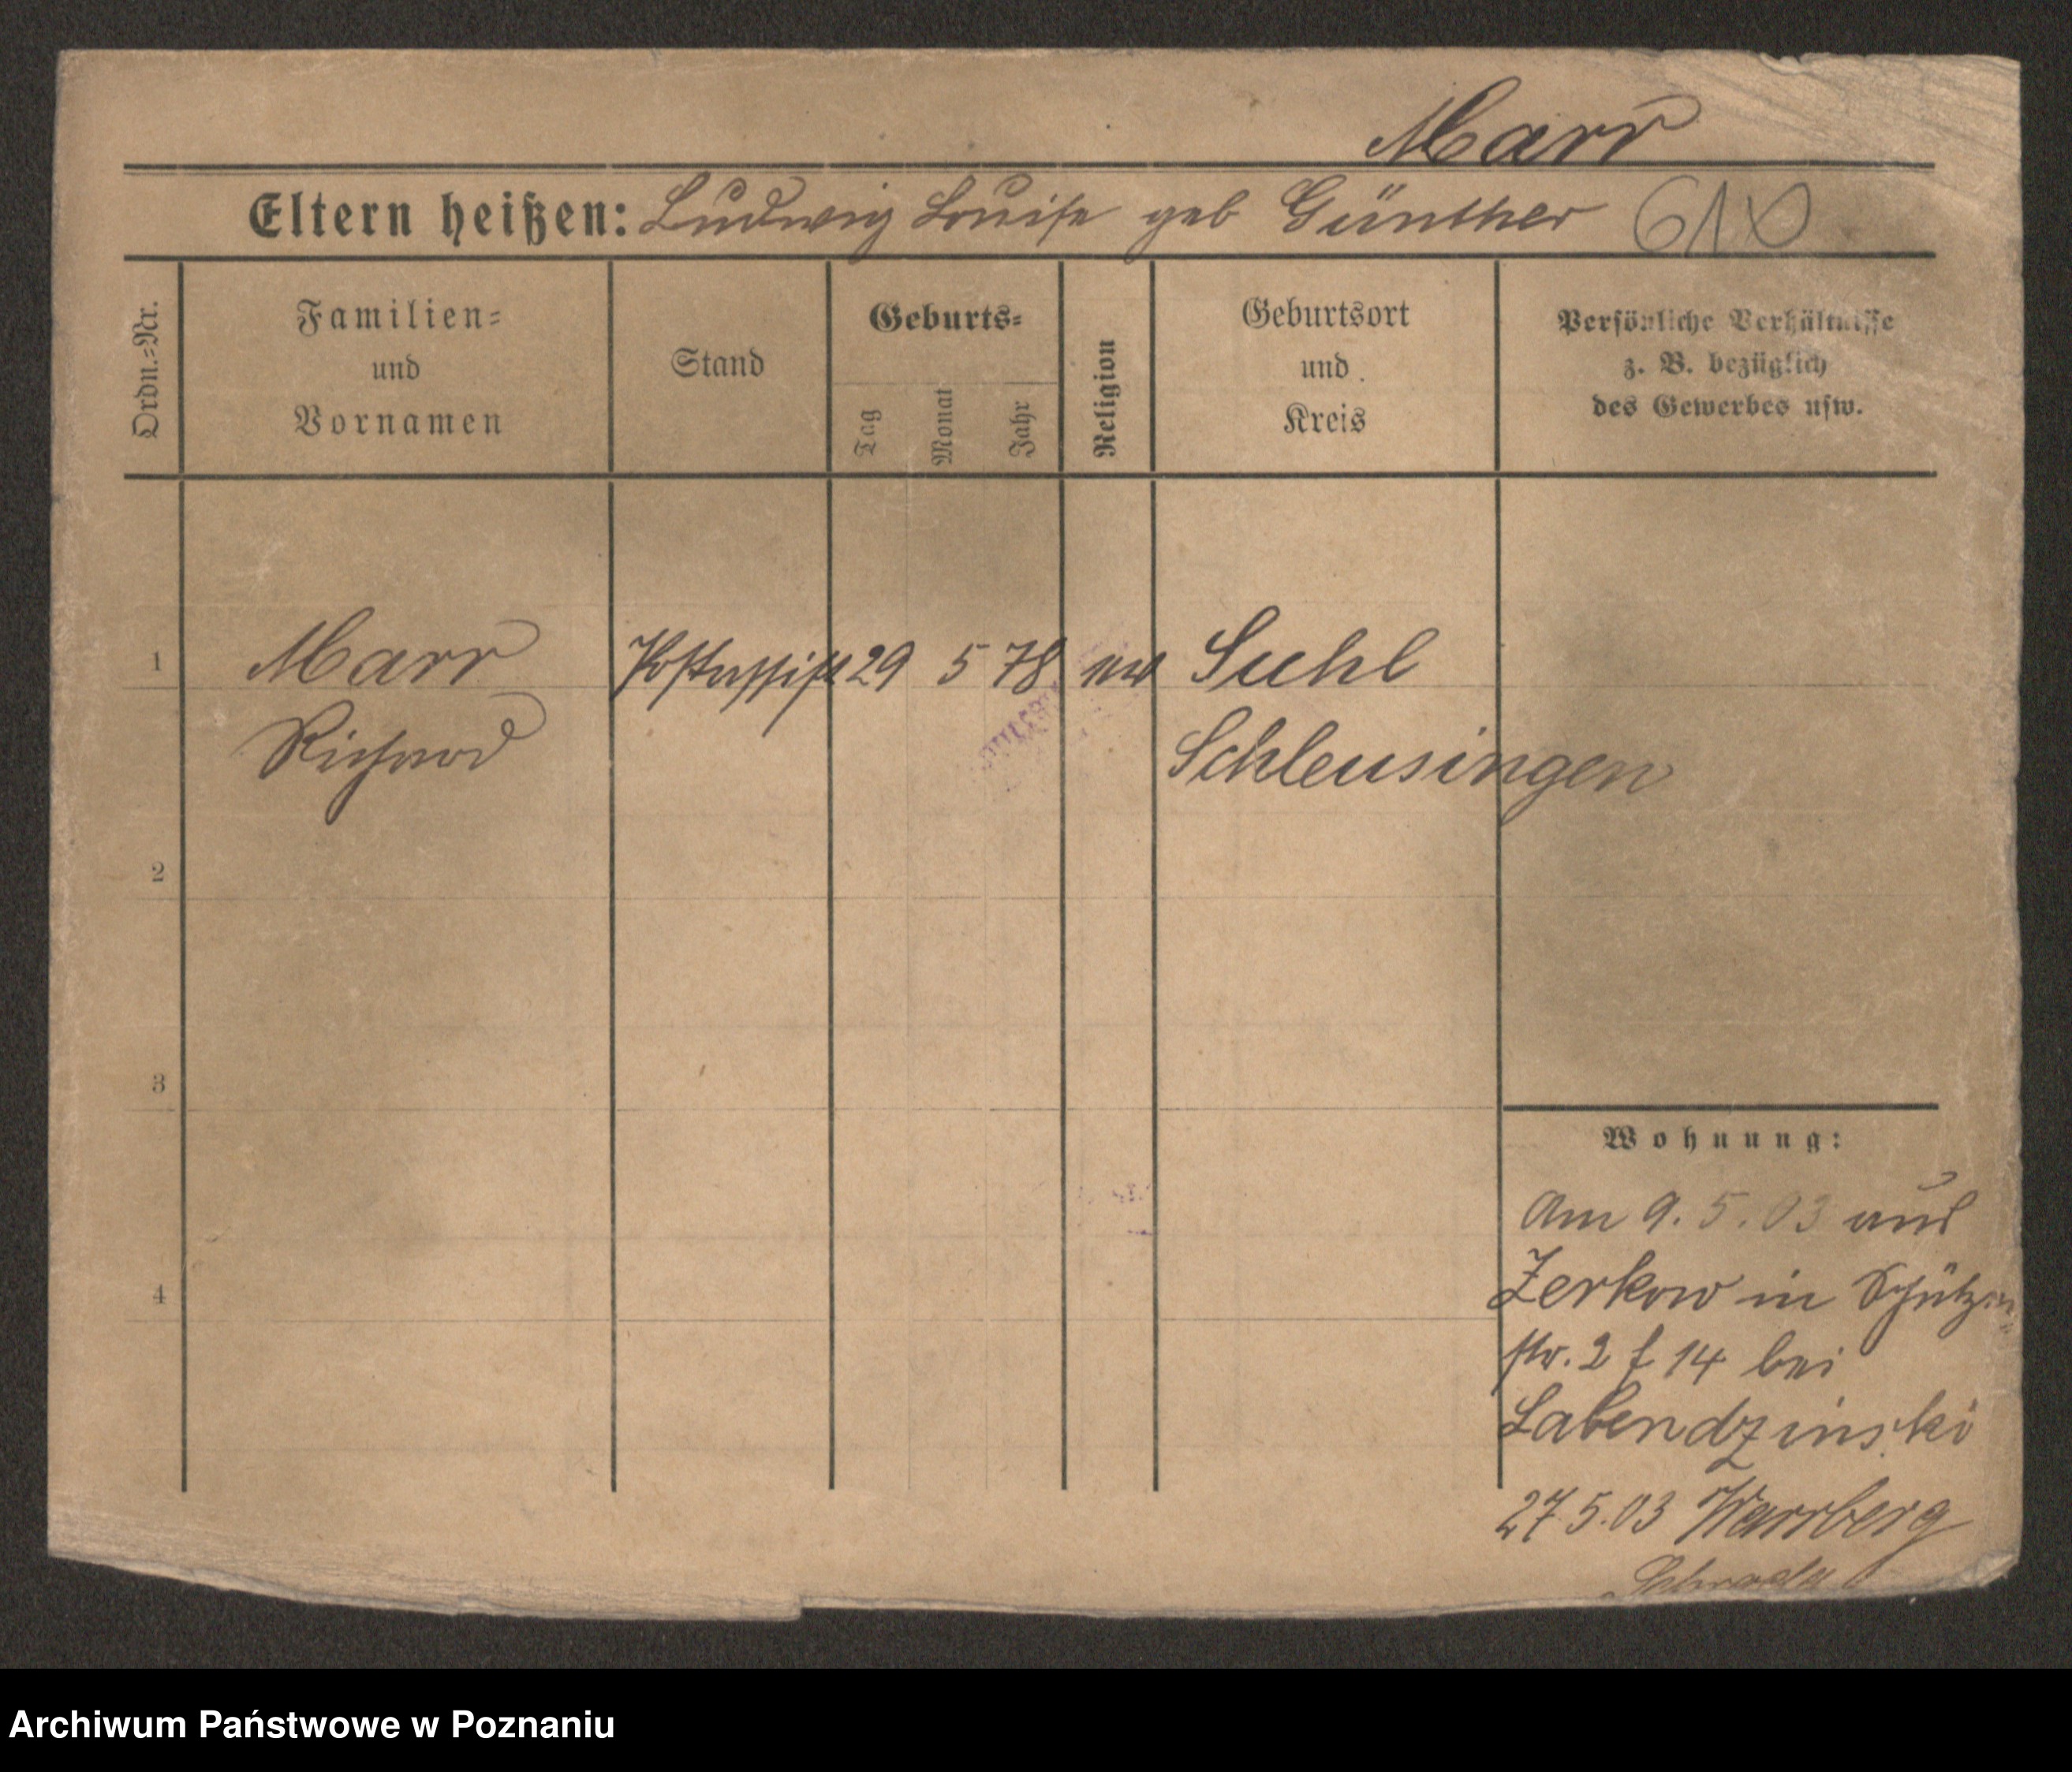 Marr
Eltern heißen: Ludwig Louise geb Günther 610
Ordn.=Nr.
Familien=
und
Vornamen
Stand
Geburts=
Tag
Monat
Jahr
Religion
Geburtsort
und
Kreis
Persönliche Verhältnisse
z. B. bezüglich
des Gewerbes usw.
1 Marr Postassist 29 5 78 ev Suhl
Richard Schleusingen
2
3
4
Wohnung:
Am 9. 5. 03 aus
Zerkow in Schützen
str. 2 f 14 bei
Labendzinski
27 5. 03 Warrberg
Schroda
Archiwum Państwowe w Poznaniu